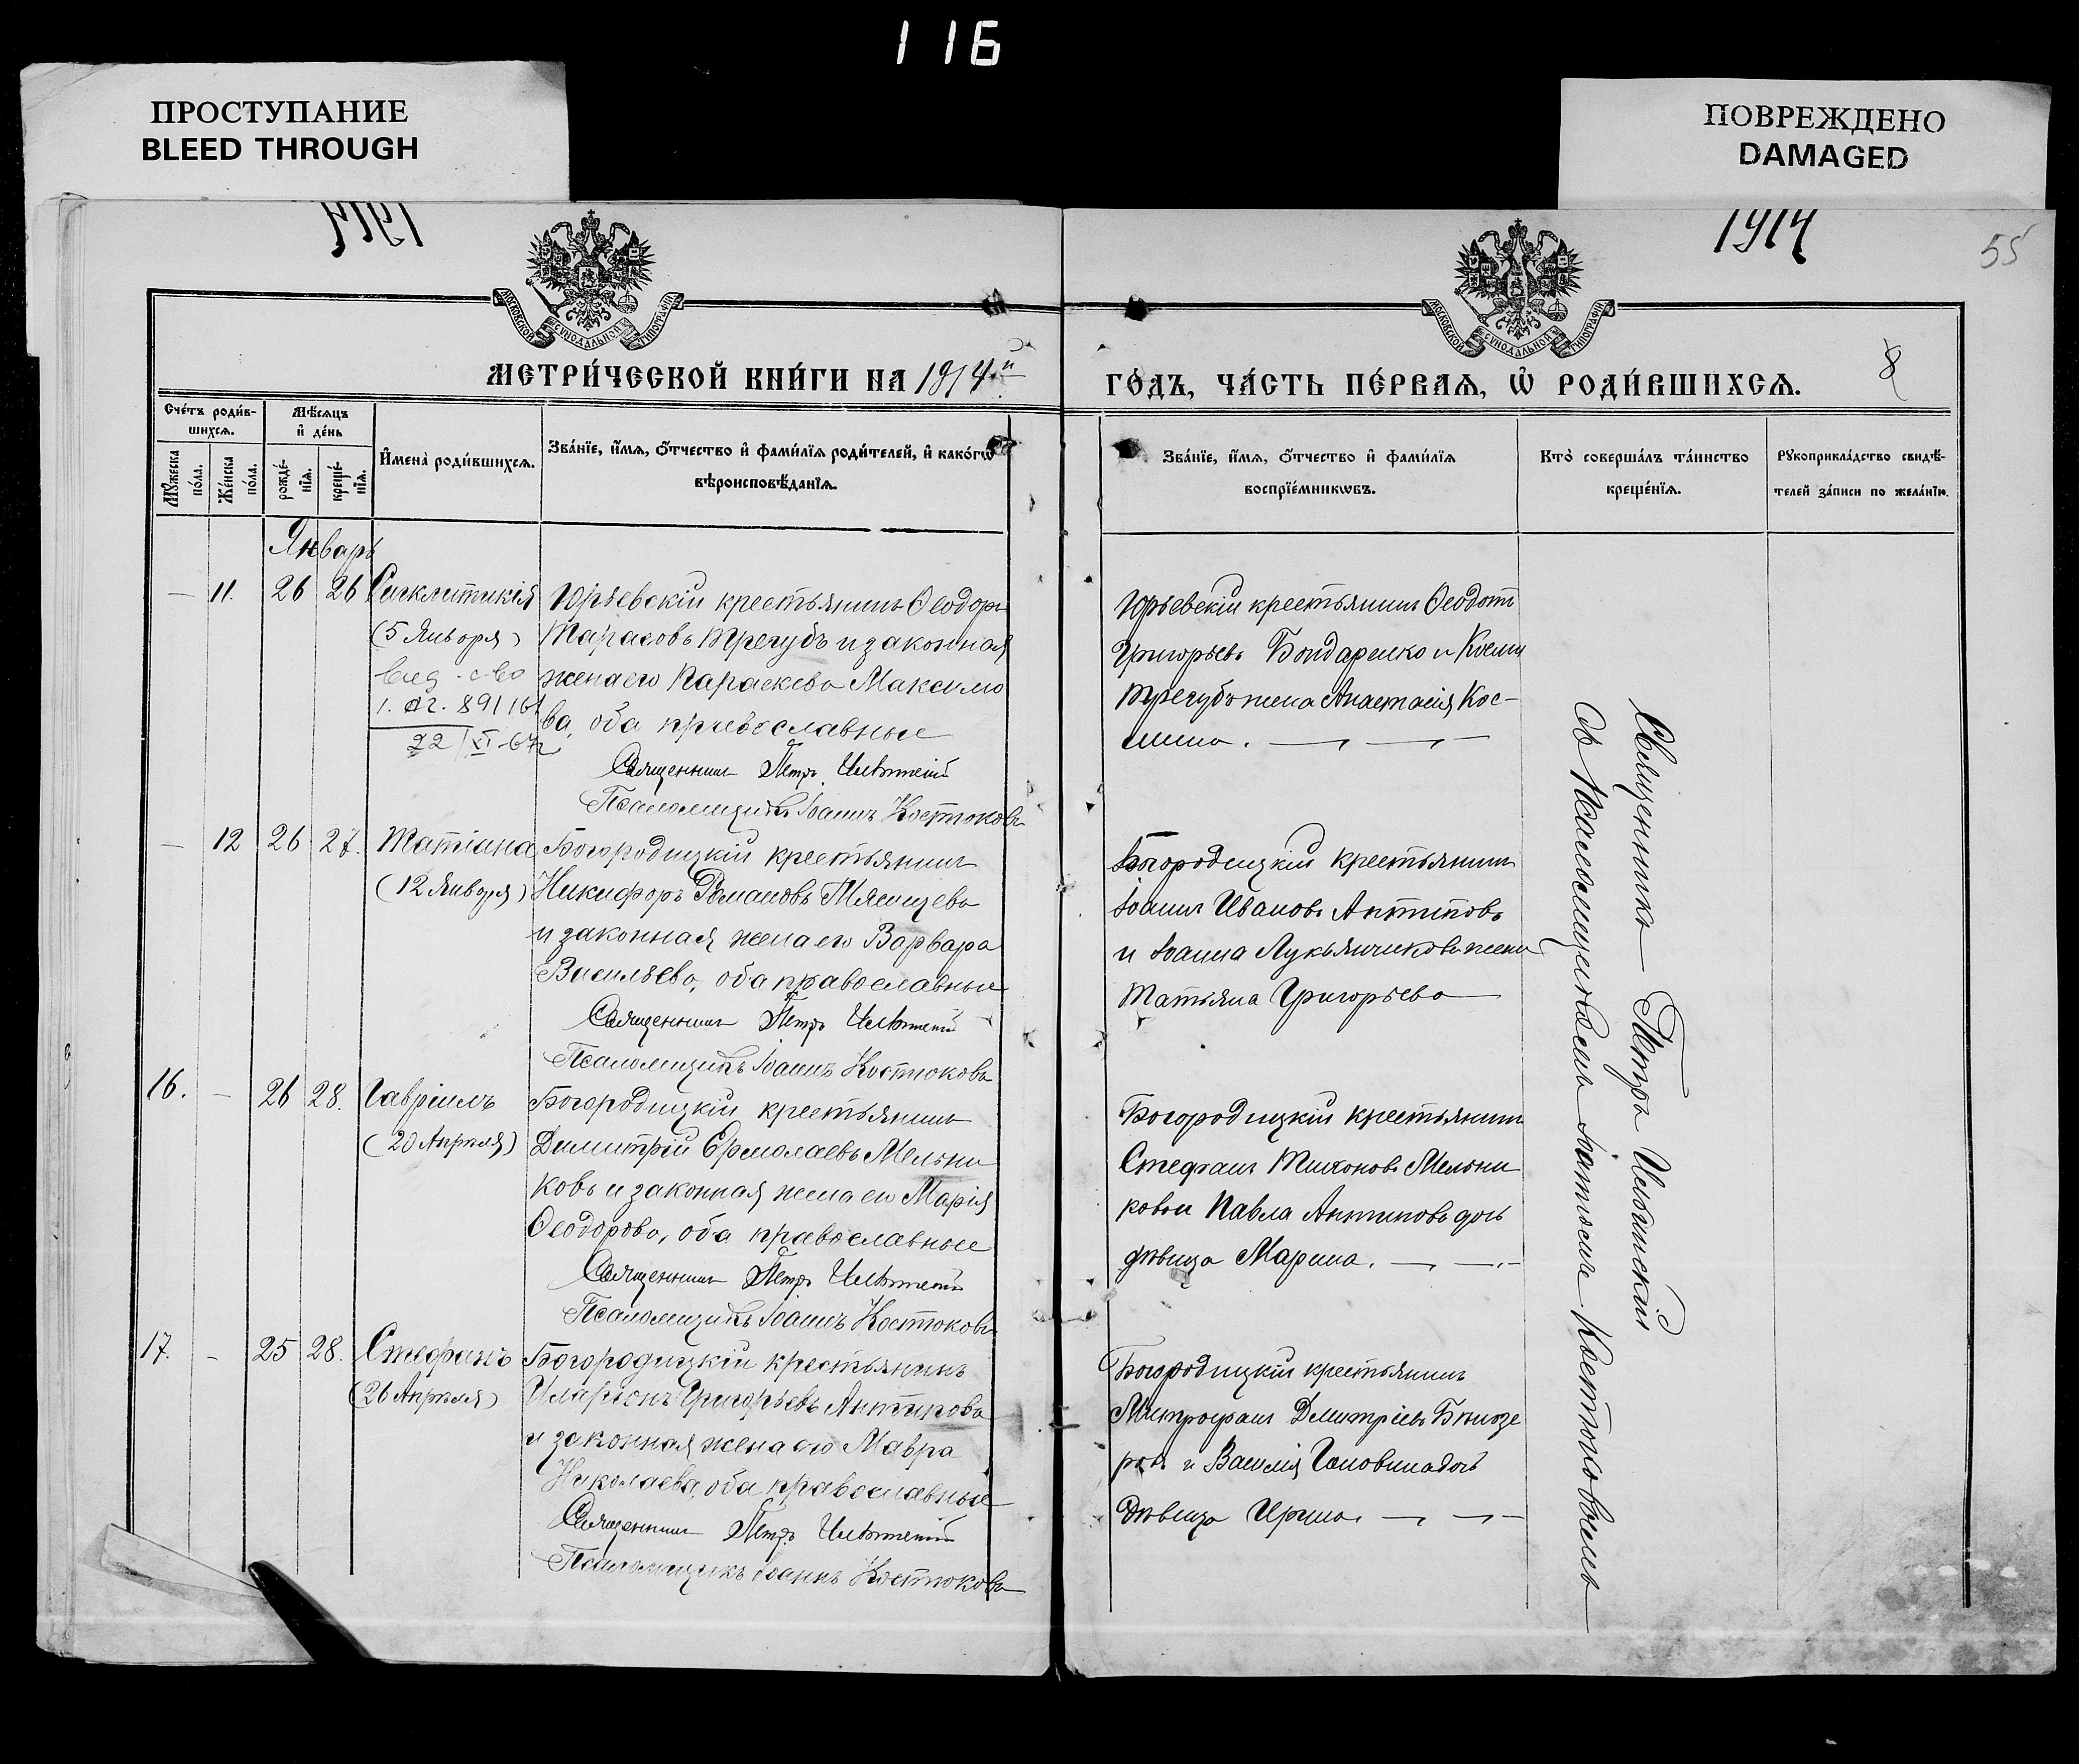 116
ПРОСТУПАНИЕ
BLEED THROUGH
ПОВРЕЖДЕНО
DAMAGED
1914
1914
55
МОСКОВСКОЙ СУНОДАЛЬНОЙ ТИПОГРАФІИ
МОСКОВСКОЙ СУНОДАЛЬНОЙ ТИПОГРАФІИ
МЕТРИ́ЧЕСКОЙ КНИ́ГИ НА 1914й
ГО́ДЪ, ЧА́СТЬ ПЕ́РВАѦ, Ѡ РОДИ́ВШИХСѦ.
8
Сче́тъ роди́в-
шихсѧ.
Мѣ́сѧцъ
и҆ де́нь
Мꙋ́жеска
по́ла.
Же́нска
по́ла.
рожде́-
нїѧ.
креще́-
нїѧ.
И҆мена̀ роди́вшихсѧ.
Зва́нїе, и҆́мѧ, ѻ҆́тчество и҆ фами́лїѧ роди́телей, и҆ како́гѡ
вѣроисповѣ́данїѧ.
Зва́нїе, и҆́мѧ, ѻ҆́тчество и҆ фами́лїѧ
воспрїе́мникѡвъ.
Кто̀ соверша́лъ та́инство
креще́нїѧ.
Рꙋкоприкла́дство свидѣ́-
телей за́писи по жела́нїю.
Январь
— 11. 26 26 Синклитикія
(5 Января)
22/XI-67
Юрьевскій крестьянинъ Ѳеодоръ
Тарасовъ Трегубъ и законная
жена его Параскева Максимо
ва, оба православные
Священникъ Петръ
Псаломщикъ Іоаннъ Костюковъ
Юрьевскій крестьянинъ Ѳеодотъ
Григорьевъ Бондаренко и
Трегубъ жена Анастасія Кос-
мина.
— 12 26 27. Татіана
(12 Января)
Богородицкій крестьянинъ
Никифоръ Романовъ Мясищевъ
и законная жена его Варвара
Васильева, оба православные
Священникъ Петръ
Псаломщикъ Іоаннъ Костюковъ
Богородицкій крестьянинъ
Іоаннъ Ивановъ Антиповъ
и Іоанна Лукьянчикова жена
Татьяна Григорьева
16. — 26 28. Гавріилъ
(20 Апрѣля)
Богородицкій крестьянинъ
Димитрій Ермолаевъ Мельни
ковъ и законная жена его Марія
Ѳеодорова, оба православные
Священникъ Петръ
Псаломщикъ Іоаннъ Костюковъ
Богородицкій крестьянинъ
Стефанъ Тихоновъ Мельни
ковъ и Павла Антипова дочь
дѣвица Марина.
17. — 25 28. Стефанъ
(26 Апрѣля)
Богородицкій крестьянинъ
Иларіонъ Григорьевъ Антиповъ
и законная жена его Мавра
Николаева, оба православные
Священникъ Петръ
Псаломщикъ Іоаннъ Костюковъ
Богородицкій крестьянинъ
Митрофанъ Димитріевъ Бѣлозе
ровъ и Василія Головина дочь
дѣвица Ирина.
Священникъ Петръ
съ Псаломщикомъ Іоанномъ Костюковымъ